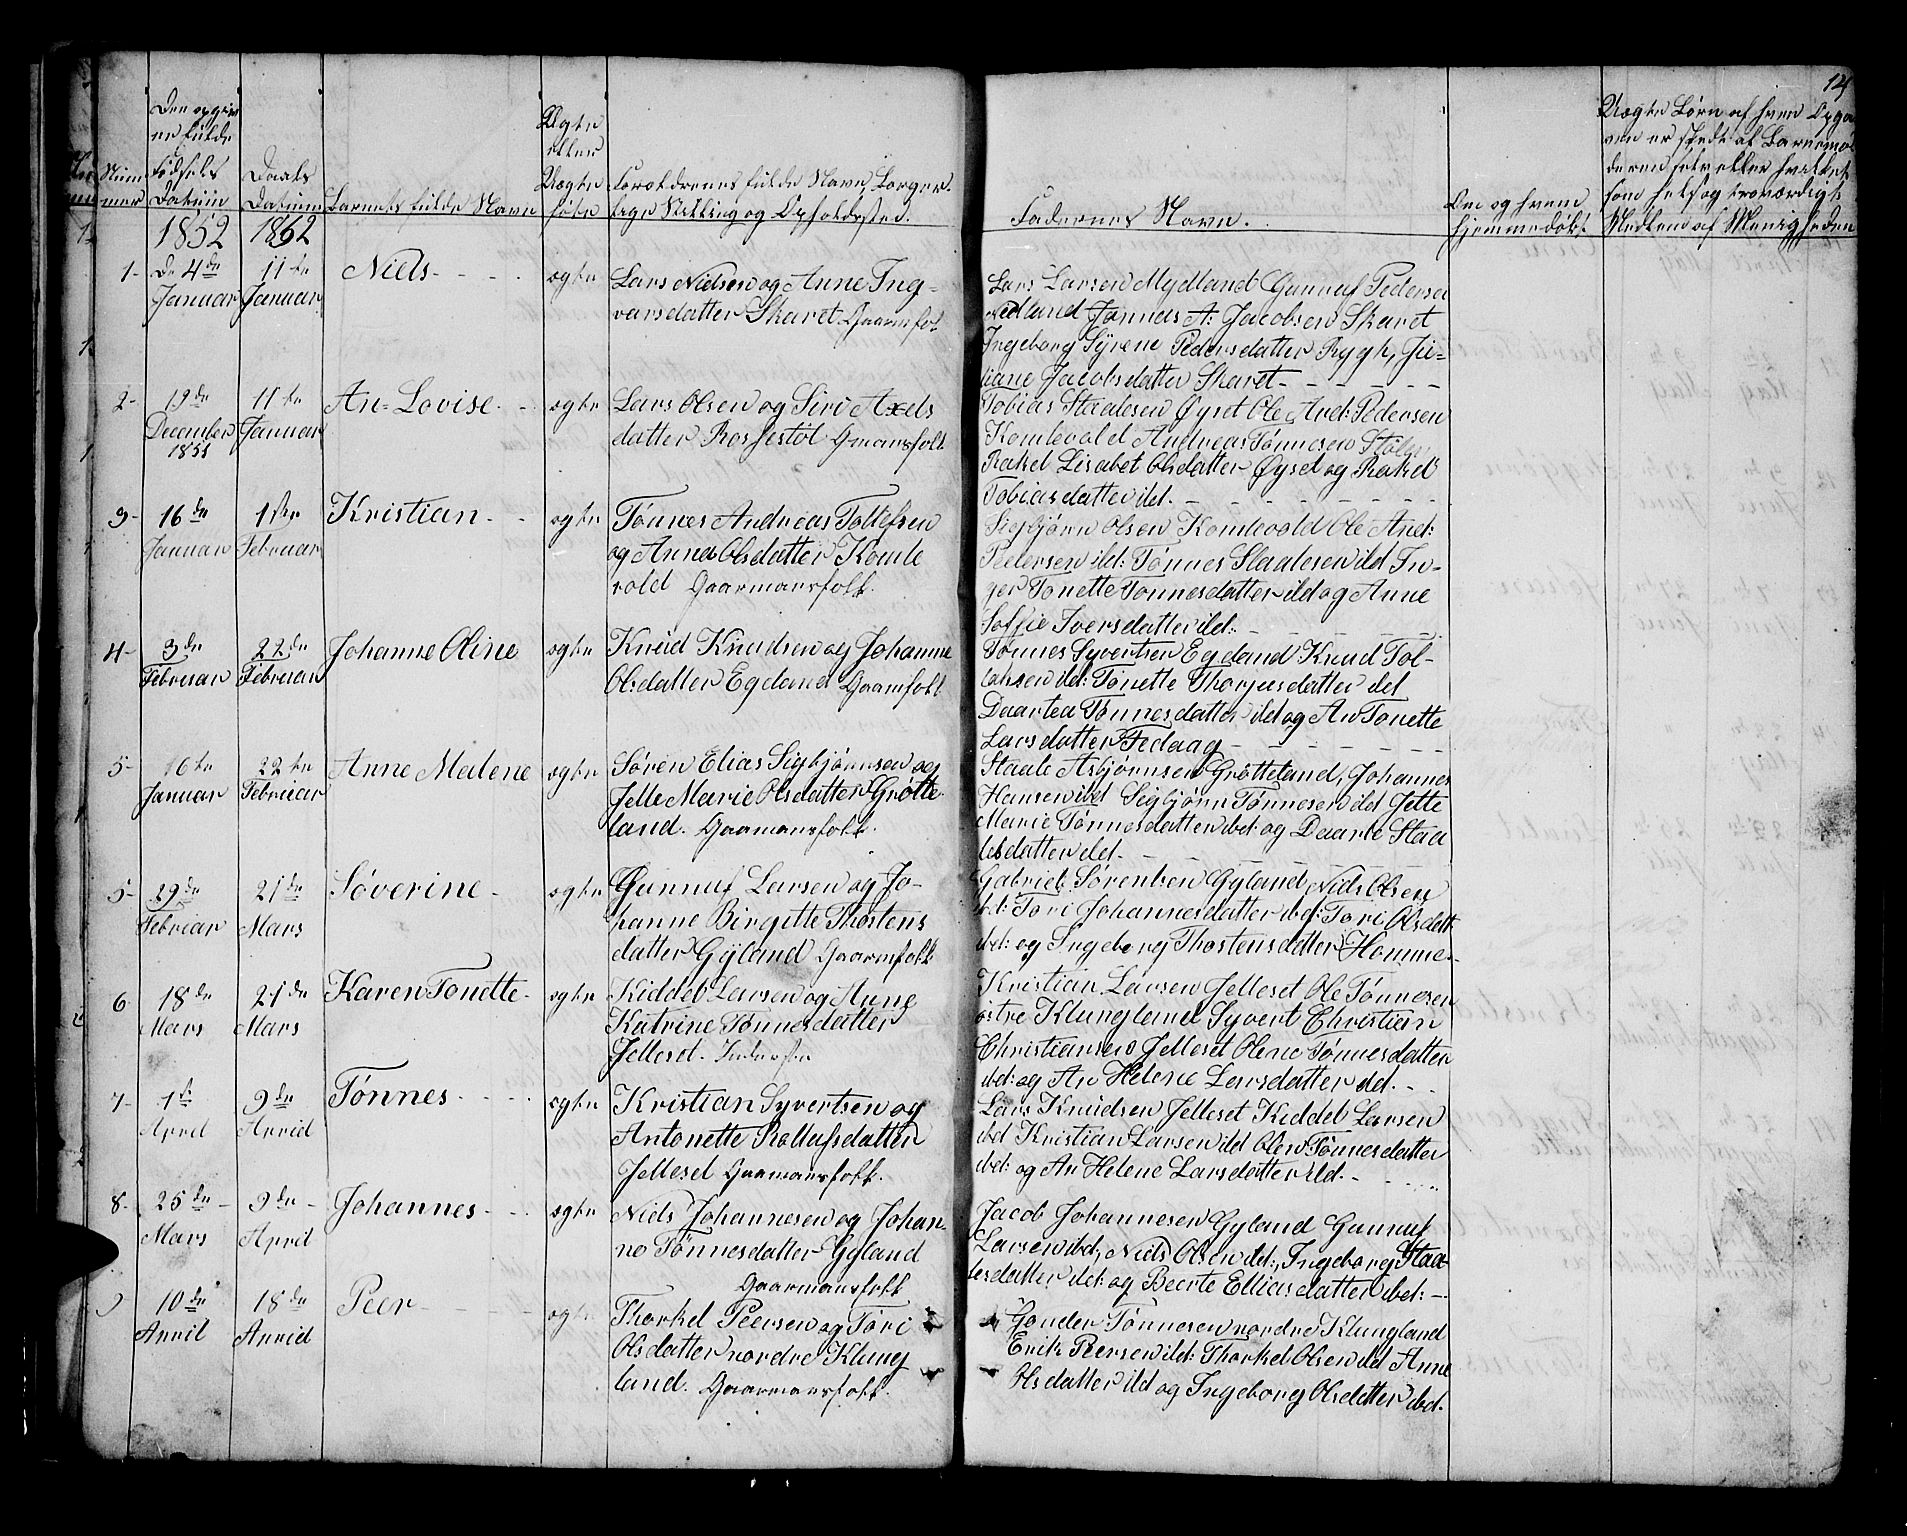 14
Num
mer
Den opgiv
ne fulde
Fødsels
Datum
Daabs
Datum
Barnets fulde Navn
Ægte
eller
Uægte
føtn
Foreldrenes fulde Navn, Borger-
lige Stilling og Opholdssted.
Faderenes Navn.
Om og hvem
hjemmedøbt
Uægte Børn af hvem Opga
ven er skedt af Barnemo
deren selv eller hvilket
som helst og troværdigt
Medlem af Menigheden
1852 1852
1- De 4de Januar
11te Januar
Niels
ægte
Lars Nielsen og Anne Ing-
varsdatter Skaret Gaarmfolk
Lars Larsen Mydland Gunnuf Pedersen
Midland Jonnas A: Jacobsen Skaret
Ingeborg Syrene Pedersdatter Rygh, Ju-
liane Jacobsdatter Skaret
2- 19de December 1851
11te Januar
An- Lovise
ægte
Lars Olsen og Siri Axels
datter Rossestøl Gmansfolk
Tobias Staalesen Øyset Ole And: Pedersen
Komlevold Andreas Tønnesen Stølen
Rakel Lisabet Olsdatter Øyset og Rakel
Tobiasdatter ibd.
3- 16de Januar
1ste Februar
Kristian
ægte
Tønnes Andreas Tollefsen
og Anna Olsdatter Komle
vold Gaarmansfolk.
Sigbjørn Olsen Komlevold Ole And:
Pedersen ibd: Tønnes Staalesen ibd In-
ger Tonette Tønnesdatter ibd og Anne
Soffie Iversdatter ibd:
4- 3de Februar
22de Februar
Johanne Oline
ægte
Knud Knudsen og Johanne
Olsdatter Egeland Gaarmfolk
Tønnes Syvertsen Egeland Knud Tol-
laksen ibd: Tønette Thorjusdatter ibd
Daartea Tønnesdatter ibd og An Tonette
Larsdatter Fedaag
5- 16te Januar
22te Februar
Anne Malene
ægte
Søren Elias Sigbjørnsen og
Jelle Marie Olsdatter Grøtte-
land. Gaarmansfolk.
Staale Asbjørnsen Grøtteland, Johannes
Hansen ibd Sigbjørn Tønnesen ibd Jette
Marie Tønnesdatter ibd: og Daarte Staa
lesdatter ibd.
5- 29de Februar
21de Mars
Søverine
ægte
Gunnuf Larsen og Jo-
hanne Birgitte Thostens
datter Gyland Gaarmfolk
Gabriel Sørensen Gyland, Niels Olsen
ibd: Tori Johannesdatter ibd: Tori Olsdatt
ibd: og Ingeborg Thostensdatter Homme
6 18de Mars
21de Mars
Karen Tonette
ægte
Kiddel Larsen og Anne
Katrine Tønnesdatter
Jelleset.
Kristian Larsen Jelleset Ole Tønnesen
østre Klungland Syvert Christian
Christiansen Jelleset Olene Tønnesdatter
ibd: og An Helene Larsdatter ibd.
7- 1te April
9de April
Tønnes
ægte
Kristian Syvertsen og
Antonette Rolufsdatter
Jelleset Gaarmansfolk.
Lars Knudsen Jelleset Kiddel Larsen
ibd Kristian Larsen ibd Olene Tønnesdatter
ibd: og An Helene Larsdatter ibd.
8- 25de Mars
9de April
Johannes
ægte
Niels Johannesen og Johan-
ne Tønnesdatter Gyland
Gaarmansfolk
Jacob Johannesen Gyland Gunnuf
Larsen ibd, Niels Olsen ibd:, Ingeborg Staa-
lesdatter ibd: og Beerte Elliasdatter ibd:
9 10de April
18de April
Peer
ægte
Thorkel Peersen og Tori
Olsdatter nordre Klung
land. Gaarmansfolk.
Gonder Tønnesen nordre Klungland
Erik Peersen ibd: Thorkel Olsen ibd Anne
Olsdatter ibd og Ingeborg Olsdatter ibd.